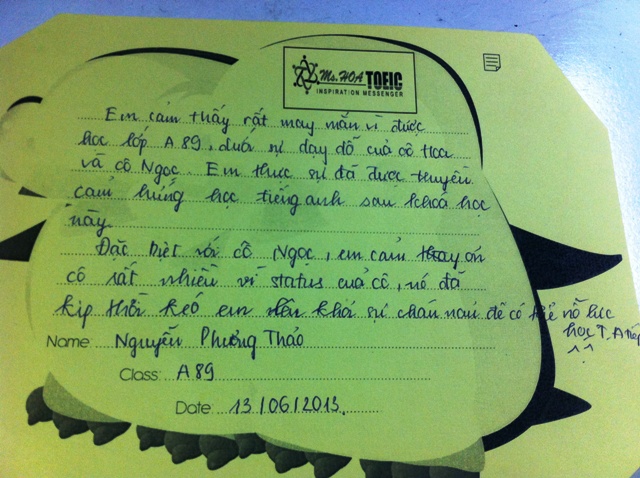 Ms. HOA TOEIC
INSPIRATION MESSENGER
Em cảm thấy rất may mắn vì được
học lớp A 89, dưới sự dạy dỗ của cô Hoa
và cô Ngọc. Em thực sự đã được truyền
cảm hứng học tiếng anh sau khoá học
này.
Đặc biệt với cô Ngọc, em cảm ơn
cô rất nhiều vì status của cô, nó đã
kịp thời kéo em khỏi sự chán nản để có thể nỗ lực
học T. A tiếp
^^
Name: Nguyễn Phương Thảo
Class: A 89
Date: 13/06/2013.